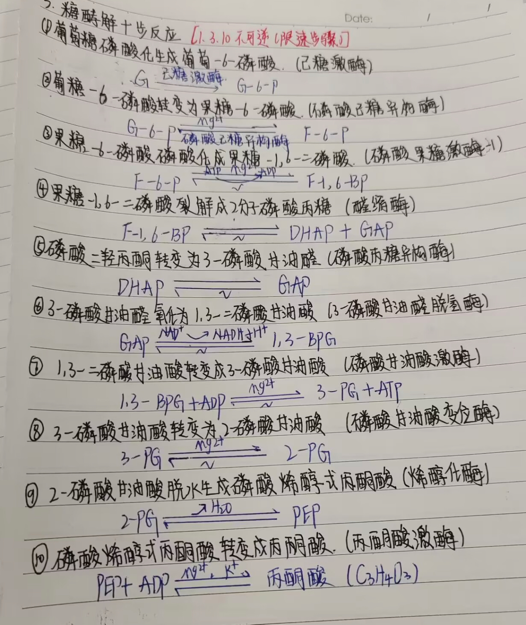 Date: / /
3. 糖酵解十步反应 [1.3.10不可逆(限速步骤)]
① 葡萄糖磷酸化生成葡萄-6-磷酸.(己糖激酶)
G 己糖激酶 G-6-p
② 葡糖-6-磷酸转变为果糖-6-磷酸.(磷酸己糖异构酶)
G-6-P mg2+ 磷酸己糖异构酶 F-6-P
③ 果糖-6-磷酸磷酸化成果糖-1,6-二磷酸.(磷酸果糖激酶-1)
F-6-P ATP mg2+ ADP F-1,6-BP
④ 果糖-1,6-二磷酸裂解成2分子磷酸丙糖 (醛缩酶)
F-1,6-BP DHAP + GAP
⑤ 磷酸二羟丙酮转变为3-磷酸甘油醛 (磷酸丙糖异构酶)
DHAP GAP
⑥ 3-磷酸甘油醛氧化为1,3-二磷酸甘油酸 (3-磷酸甘油醛脱氢酶)
GAP NAD+ NADH+H+ 1,3-BPG
⑦ 1,3-二磷酸甘油酸转变成3-磷酸甘油酸 (磷酸甘油酸激酶)
1,3-BPG+ADP mg2+ 3-PG+ATP
⑧ 3-磷酸甘油酸转变为2-磷酸甘油酸 (磷酸甘油酸变位酶)
3-PG mg2+ 2-PG
⑨ 2-磷酸甘油酸脱水生成磷酸烯醇式丙酮酸 (烯醇化酶)
2-PG H2O PEP
⑩ 磷酸烯醇式丙酮酸转变成丙酮酸.(丙酮酸激酶)
PEP+ADP mg2+, K+ 丙酮酸 (C3H4O3)